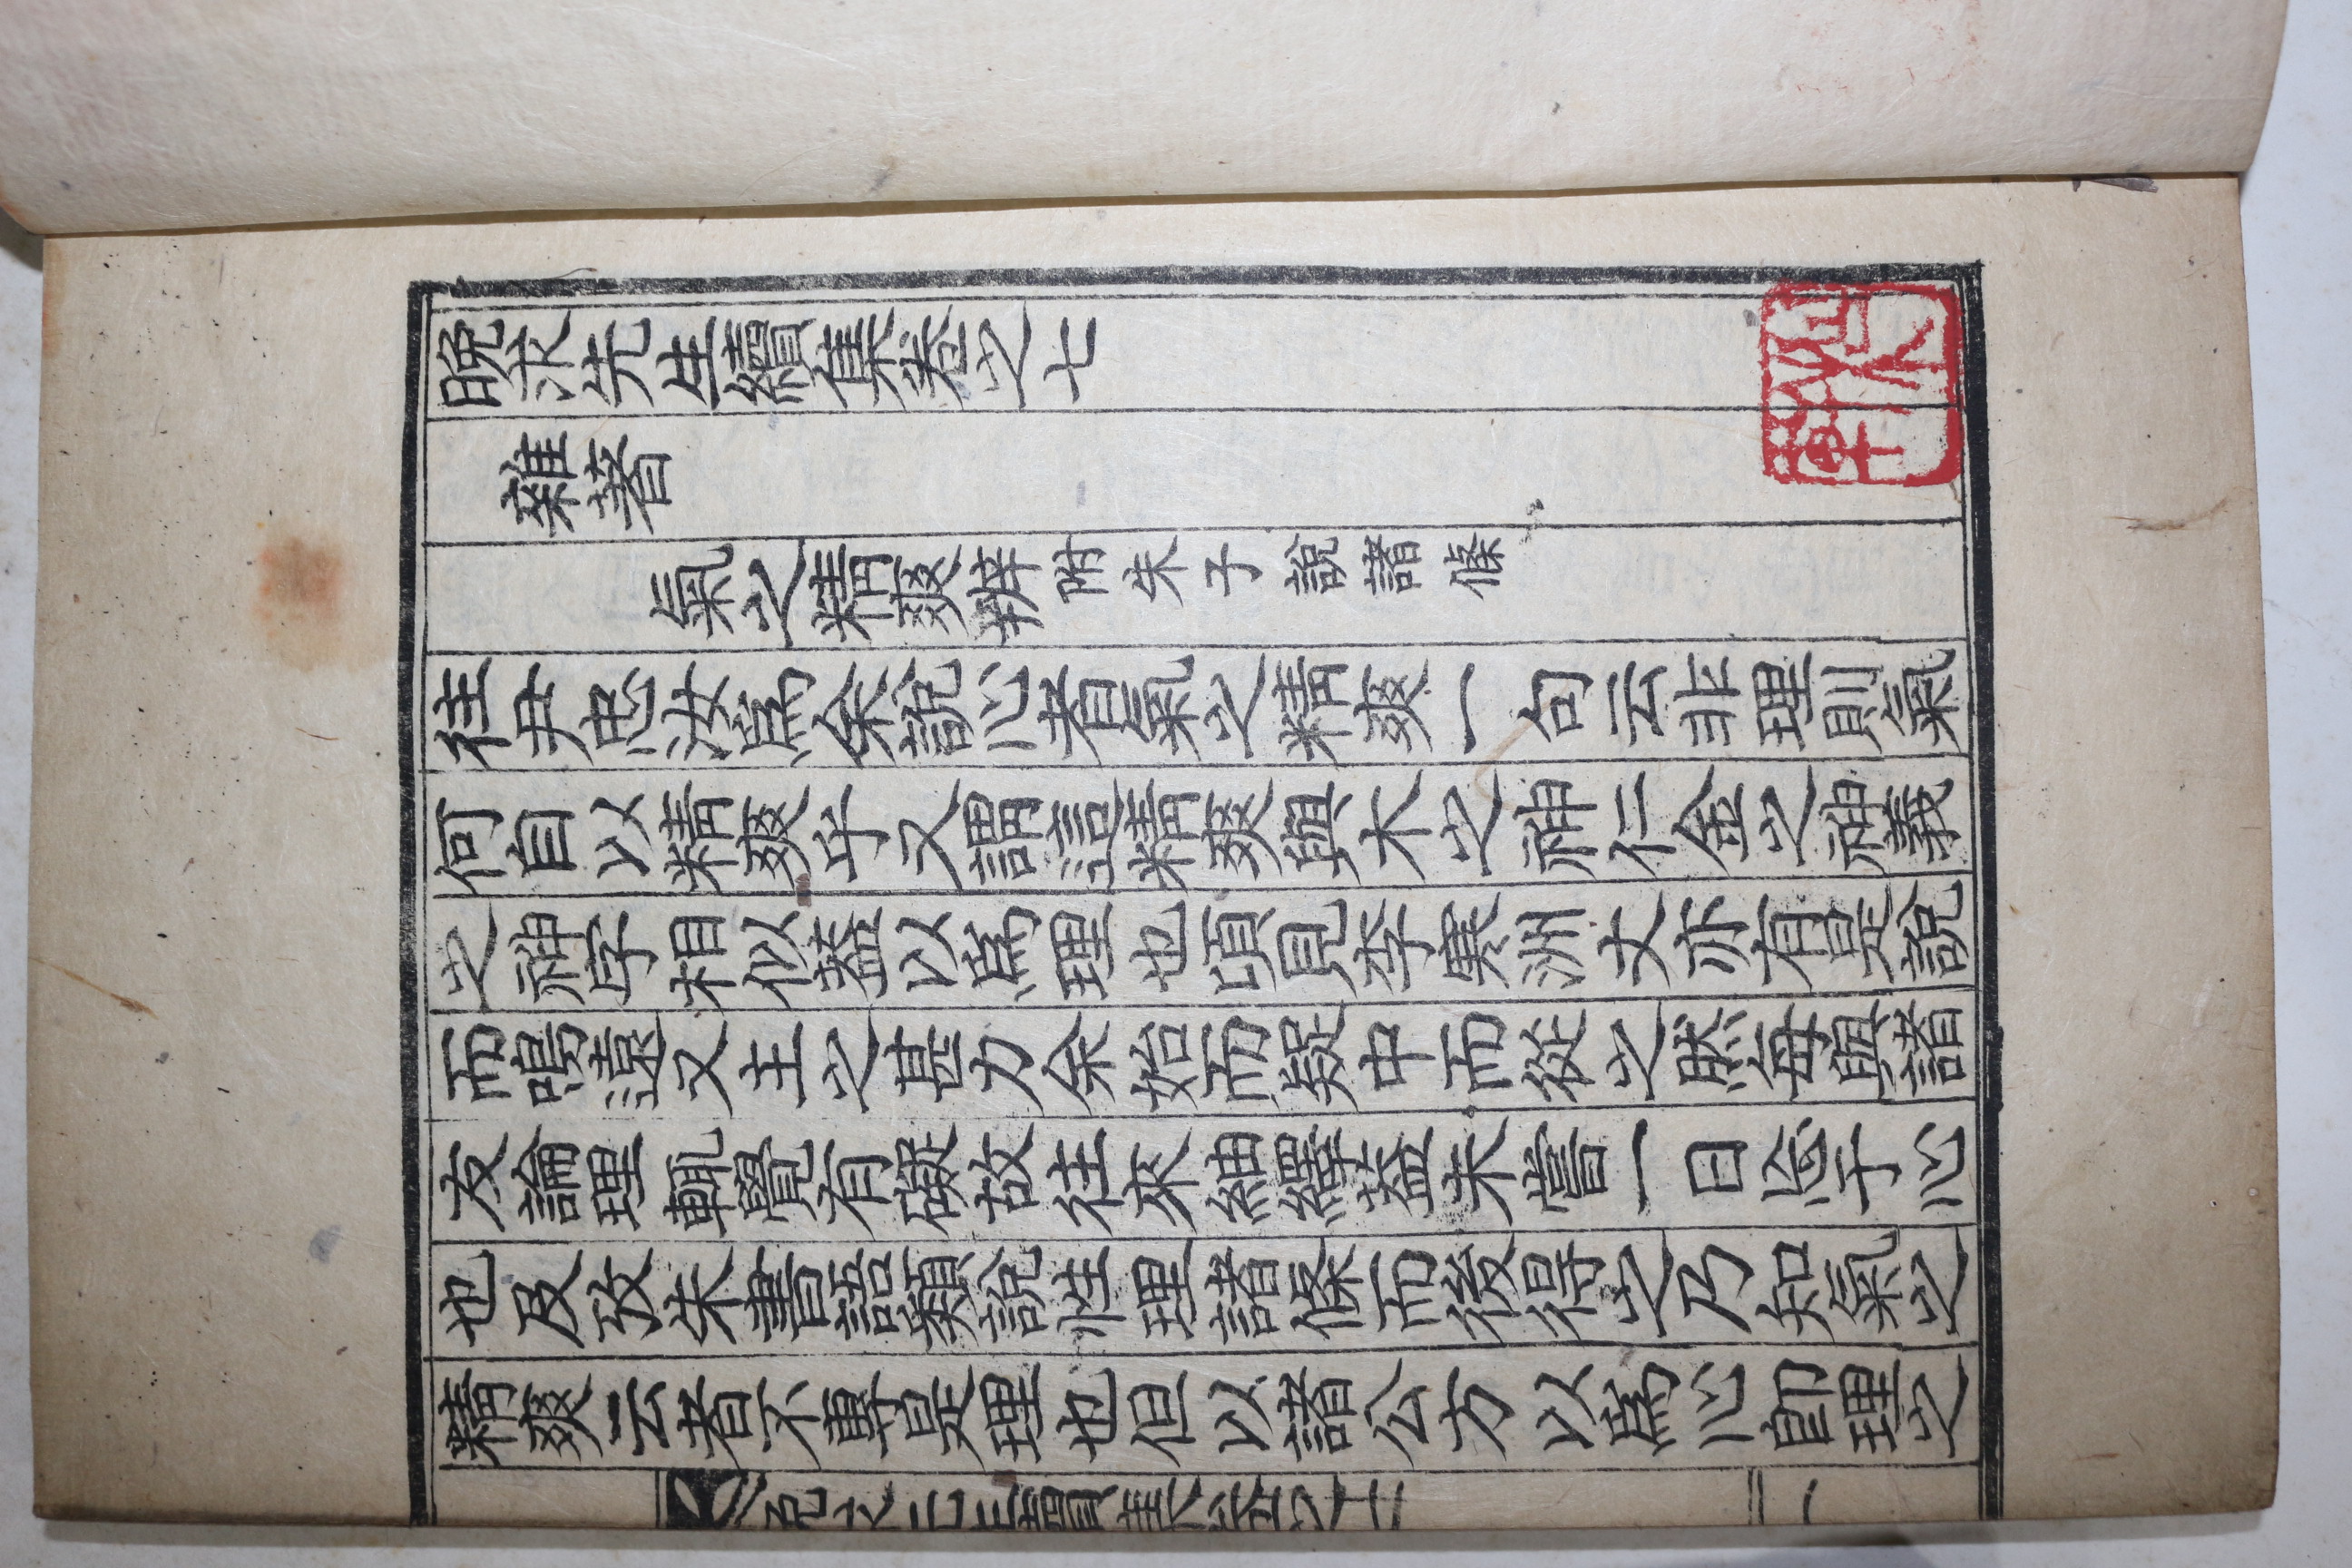 晚求先生續集卷之七
雜著
氣之精爽辨附朱子說諸條
往尹忠汝爲余說心者氣之精爽一句云非理則氣
何自以精爽乎又謂這精爽與木之神仁金之神義
之神字相似盖以爲理也頃見李寒洲文亦有是說
而鳴遠又主之甚力余始而疑中而從之然每與諸
友論理輒覺有礙故往來紬繹盖未嘗一日忘于心
也及攷朱書語類說性理諸條而後得之乃知氣之
精爽云者不專是理也但以諸公方以爲心卽理之
晚求先生續集卷之七 一